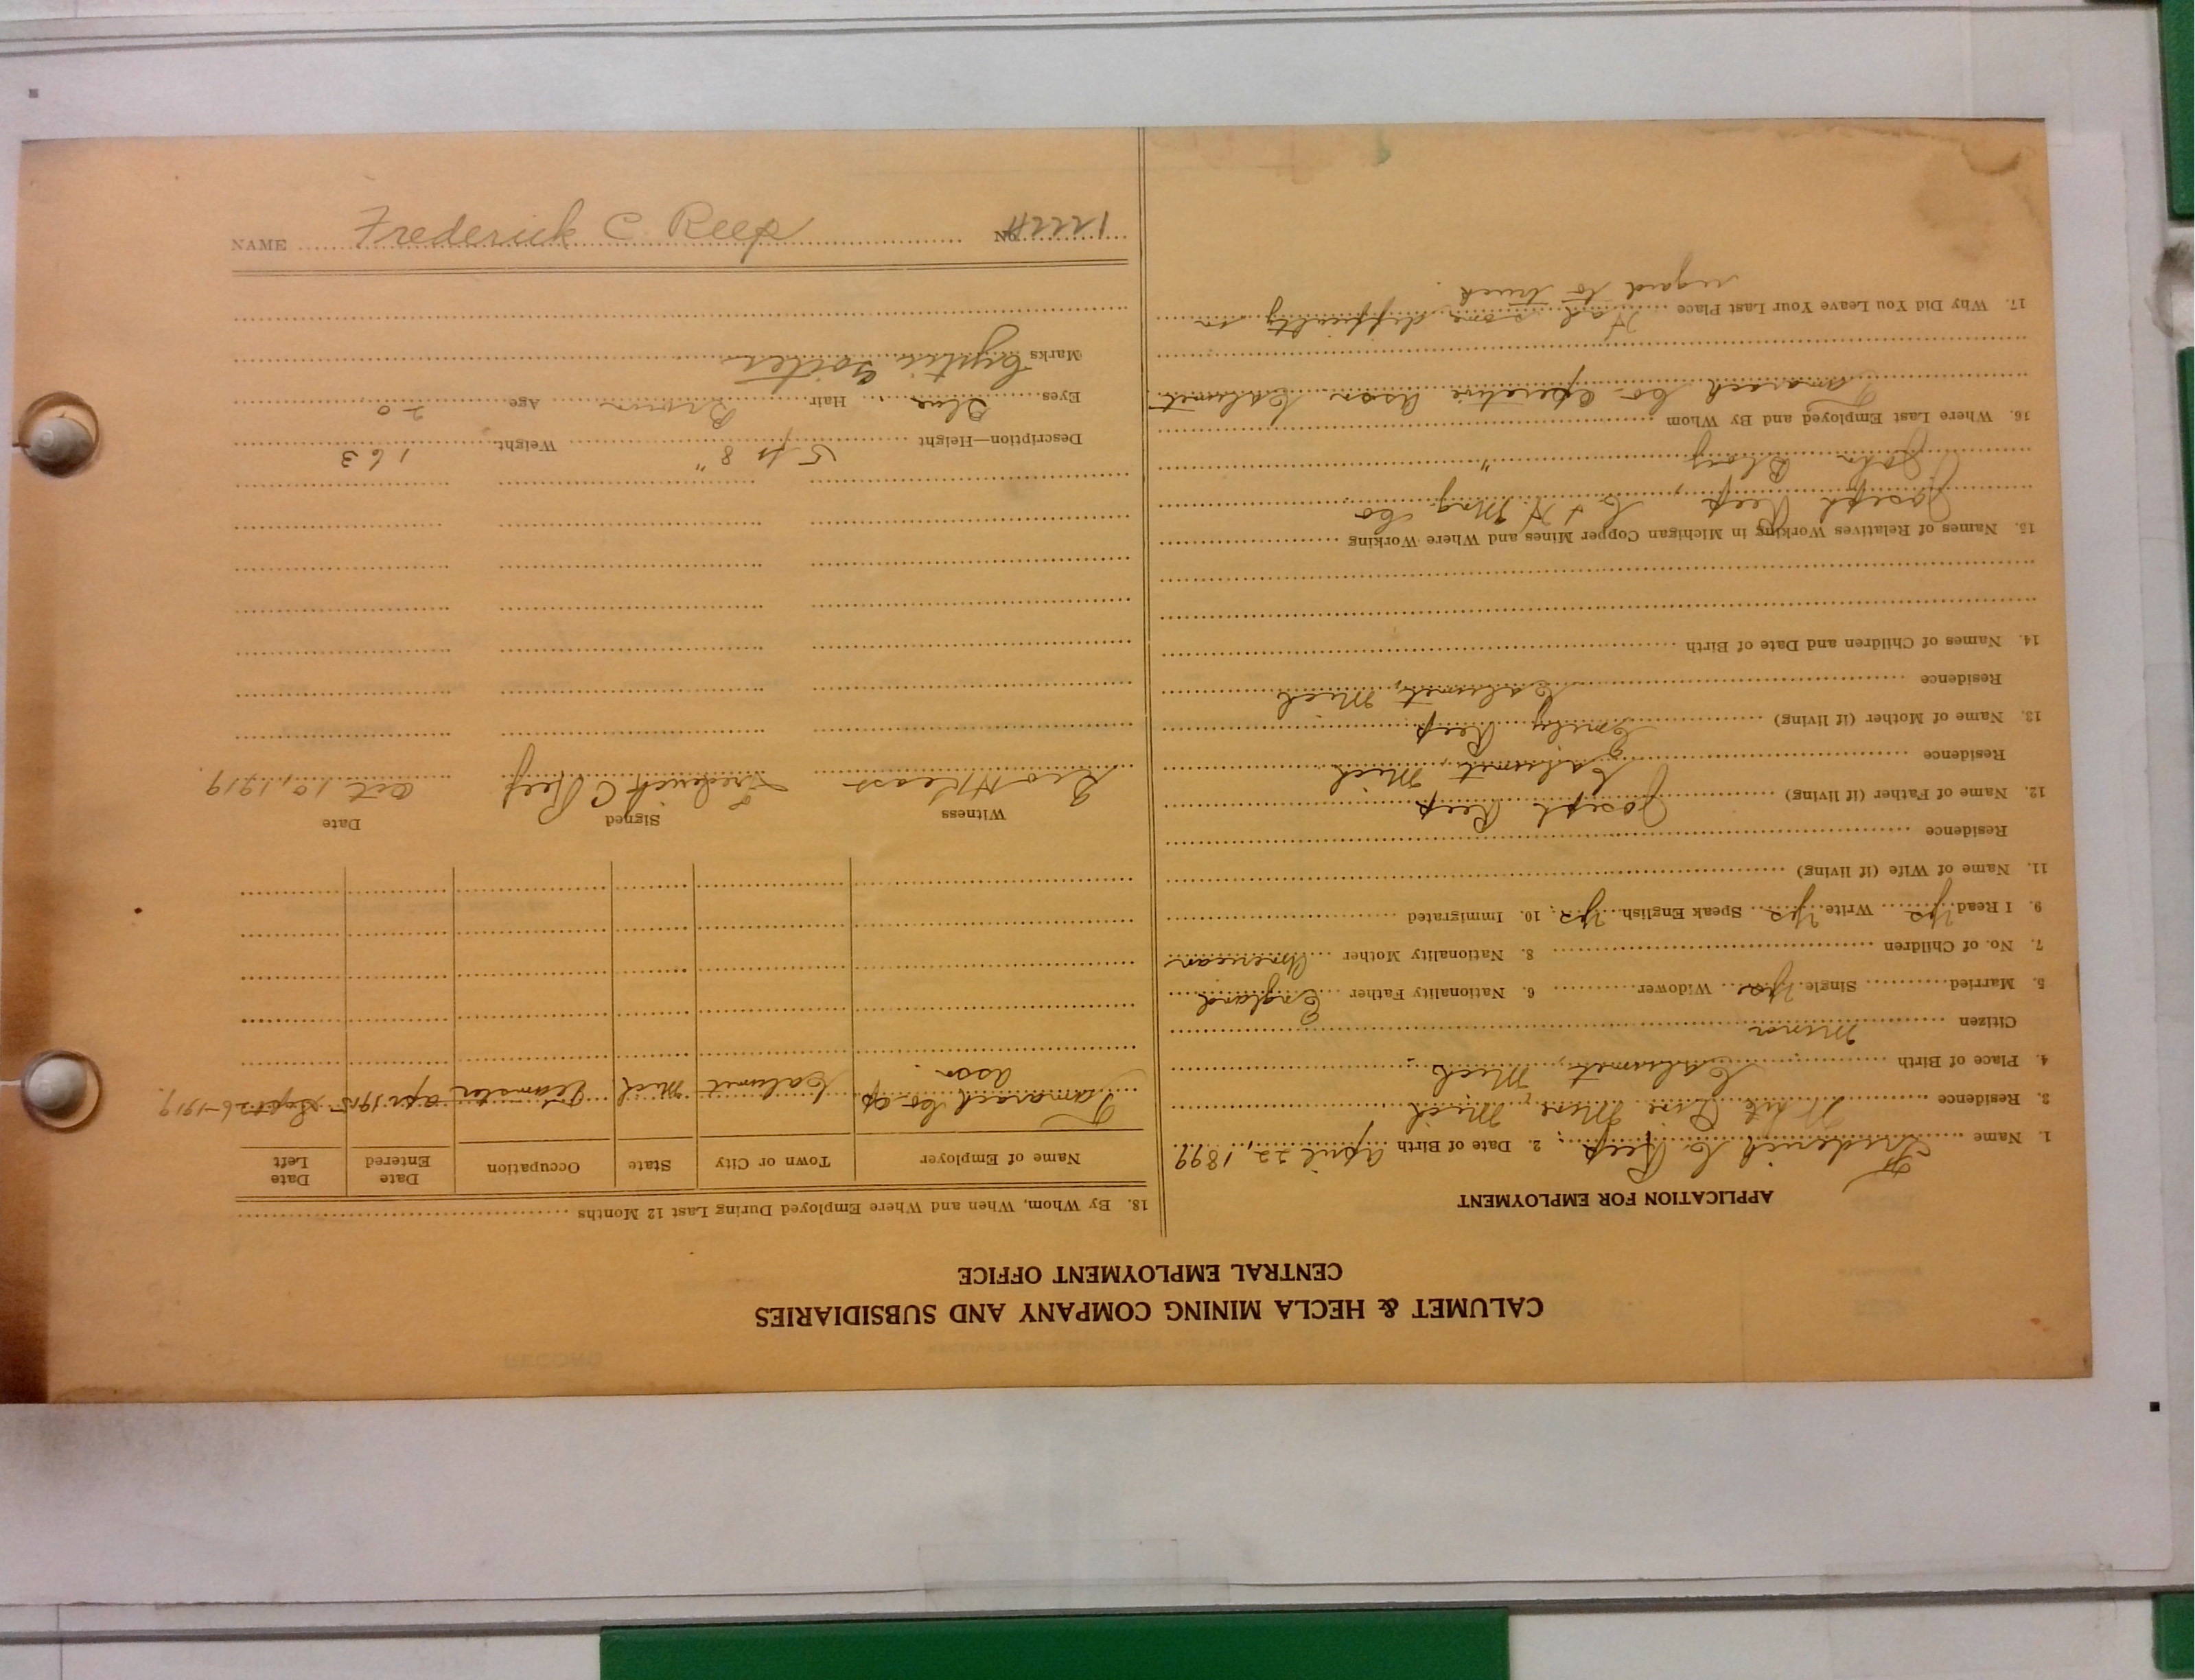 CALUMET & HECLA MINING COMPANY AND SUBSIDIARIES
CENTRAL EMPLOYMENT OFFICE
APPLICATION FOR EMPLOYMENT
1. Name Frederick C. Reep; 2. Date of Birth April 22, 1899
3. Residence White Pine Mine, Mich
4. Place of Birth Calumet, Mich
Citizen Minor
5. Married Single yes Widower 6. Nationality Father England
7. No. of Children 8. Nationality Mother American
9. I Read yes Write yes Speak English yes; 10. Immigrated
11. Name of Wife (if living)
Residence
12. Name of Father (if living) Joseph Reep
Residence Calumet, Mich
13. Name of Mother (if living) Emily Reep
Residence Calumet, Mich
14. Names of Children and Date of Birth
15. Names of Relatives Working in Michigan Copper Mines and Where Working
Joseph Reep, C & H. Mng. Co
John Bloy "
16. Where Last Employed and By Whom
Tamarack Co-operative Assn. Calumet
17. Why Did You Leave Your Last Place Had some difficulty in
regard to truck.
18. By Whom, When and Where Employed During Last 12 Months
Name of Employer Town or City State Occupation Date Entered Date Left
Tamarack Co-op Calumet Mich Teamster Apr. 1915 Sept 26-1919.
Assn.
Witness Signed Date
Geo H Kearr Frederick C Reep Oct. 10, 1919.
Description—Height 5 ft 8" Weight 163
Eyes Blue Hair Brown Age 20
Marks Cystic Goiter
NAME Frederick C. Reep No.